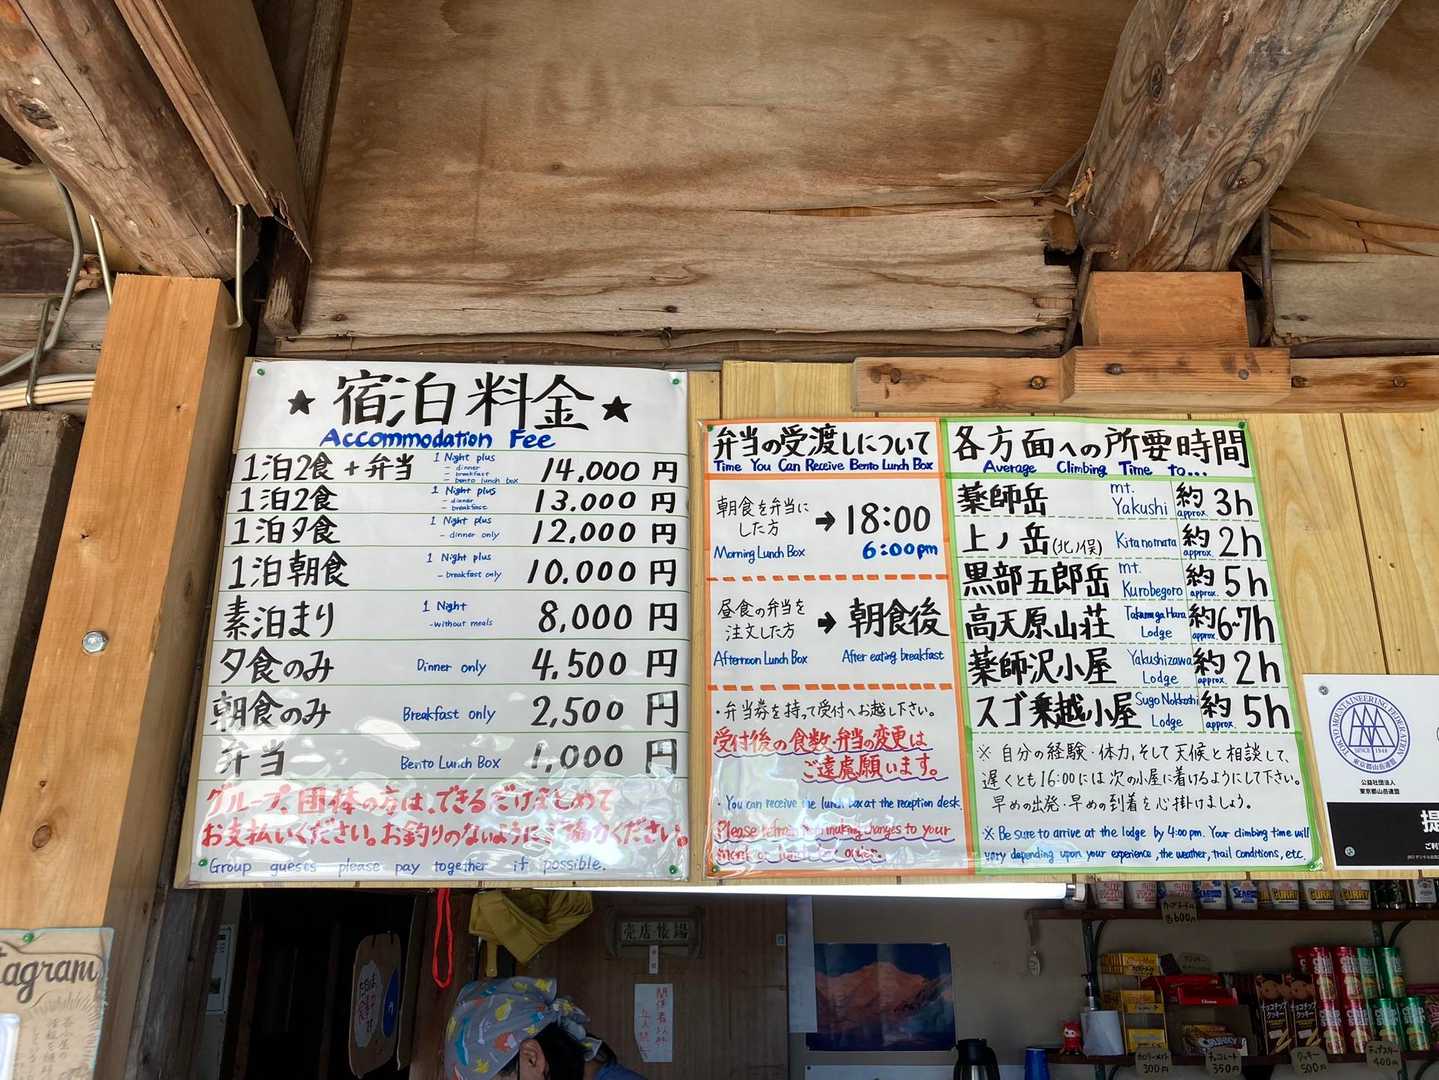 ★宿泊料金★
Accommodation Fee
1泊2食+弁当 1 Night plus - dinner - breakfast - bento lunch box 14,000円
1泊2食 1 Night plus - dinner - breakfast 13,000円
1泊夕食 1 Night plus - dinner only 12,000円
1泊朝食 1 Night plus - breakfast only 10,000円
素泊まり 1 Night - without meals 8,000円
夕食のみ Dinner only 4,500円
朝食のみ Breakfast only 2,500円
弁当 Bento Lunch Box 1,000円
グループ、団体の方は、できるだけまとめて
お支払いください。お釣りのないようにご協力ください。
Group guests please pay together if possible.
弁当の受渡しについて
Time You Can Receive Bento Lunch Box
朝食を弁当に
した方 → 18:00
Morning Lunch Box 6:00pm
昼食の弁当を
注文した方 → 朝食後
Afternoon Lunch Box After eating breakfast
・弁当券を持って受付へお越し下さい。
受付後の食数・弁当の変更は
ご遠慮願います。
・You can receive the lunch box at the reception desk.
Please refrain from making changes to your
order.
各方面への所要時間
Average Climbing Time to...
薬師岳 mt. Yakushi 約 approx. 3h
上ノ岳(北ノ俣) Kitanomata 約 approx. 2h
黒部五郎岳 mt. Kurobegoro 約 approx. 5h
高天原山荘 Takamagahara Lodge 約 approx. 6~7h
薬師沢小屋 Yakushizawa Lodge 約 approx. 2h
スゴ乗越小屋 Sugo Nokkoshi Lodge 約 approx. 5h
※ 自分の経験・体力、そして天候と相談して、
遅くとも16:00には次の小屋に着けるようにして下さい。
早めの出発・早めの到着を心掛けましょう。
※ Be sure to arrive at the lodge by 4:00pm. Your climbing time will
vary depending upon your experience, the weather, trail conditions, etc.
TOKYO MOUNTAINEERING FEDERATION
SINCE 1948
東京都山岳連盟
公益社団法人
東京都山岳連盟
提
ご利
tagram
売店
カップヌードル
各600円
カロリーメイト
300円
チョコレート
350円
クッキー
500円
チップスター
400円